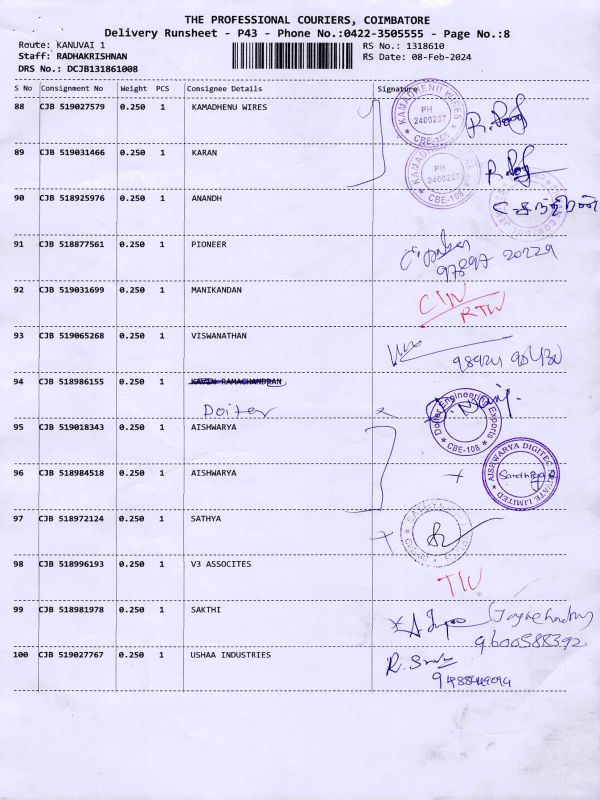 THE PROFESSIONAL COURIERS, COIMBATORE
Delivery Runsheet - P43 - Phone No.:0422-3505555 - Page No.:8
Route: KANUVAI 1 RS No.: 1318610
Staff: RADHAKRISHNAN RS Date: 08-Feb-2024
DRS No.: DCJB131861008
S No Consignment No Weight PCS Consignee Details Signature
88 CJB 519027579 0.250 1 KAMADHENU WIRES
KAMADHENU WIRES PH 2400207 CBE-108
89 CJB 519031466 0.250 1 KARAN
PH 2400207 CBE-108
90 CJB 518925976 0.250 1 ANANDH
91 CJB 518877561 0.250 1 PIONEER
97897 20229
92 CJB 519031699 0.250 1 MANIKANDAN
RTW
93 CJB 519065268 0.250 1 VISWANATHAN
94 CJB 518986155 0.250 1 KAVIN RAMACHANDRAN
Doiter
Engineering Exports CBE-108
95 CJB 519018343 0.250 1 AISHWARYA
96 CJB 518984518 0.250 1 AISHWARYA
AISHWARYA DIGITEC PRIVATE LIMITED
97 CJB 518972124 0.250 1 SATHYA
98 CJB 518996193 0.250 1 V3 ASSOCITES
99 CJB 518981978 0.250 1 SAKTHI
9600588392
100 CJB 519027767 0.250 1 USHAA INDUSTRIES